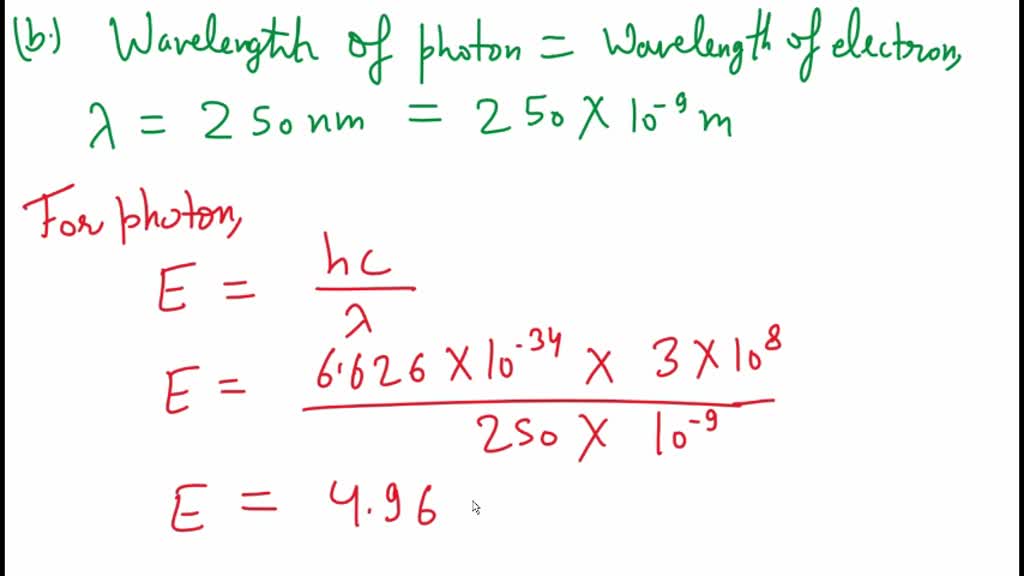 (b.) Wavelength of photon = Wavelength of electron,
λ = 250 nm = 250 X 10⁻⁹ m
For photon,
E = hc / λ
E = 6.626 X 10⁻³⁴ X 3 X 10⁸ / 250 X 10⁻⁹
E = 4.96